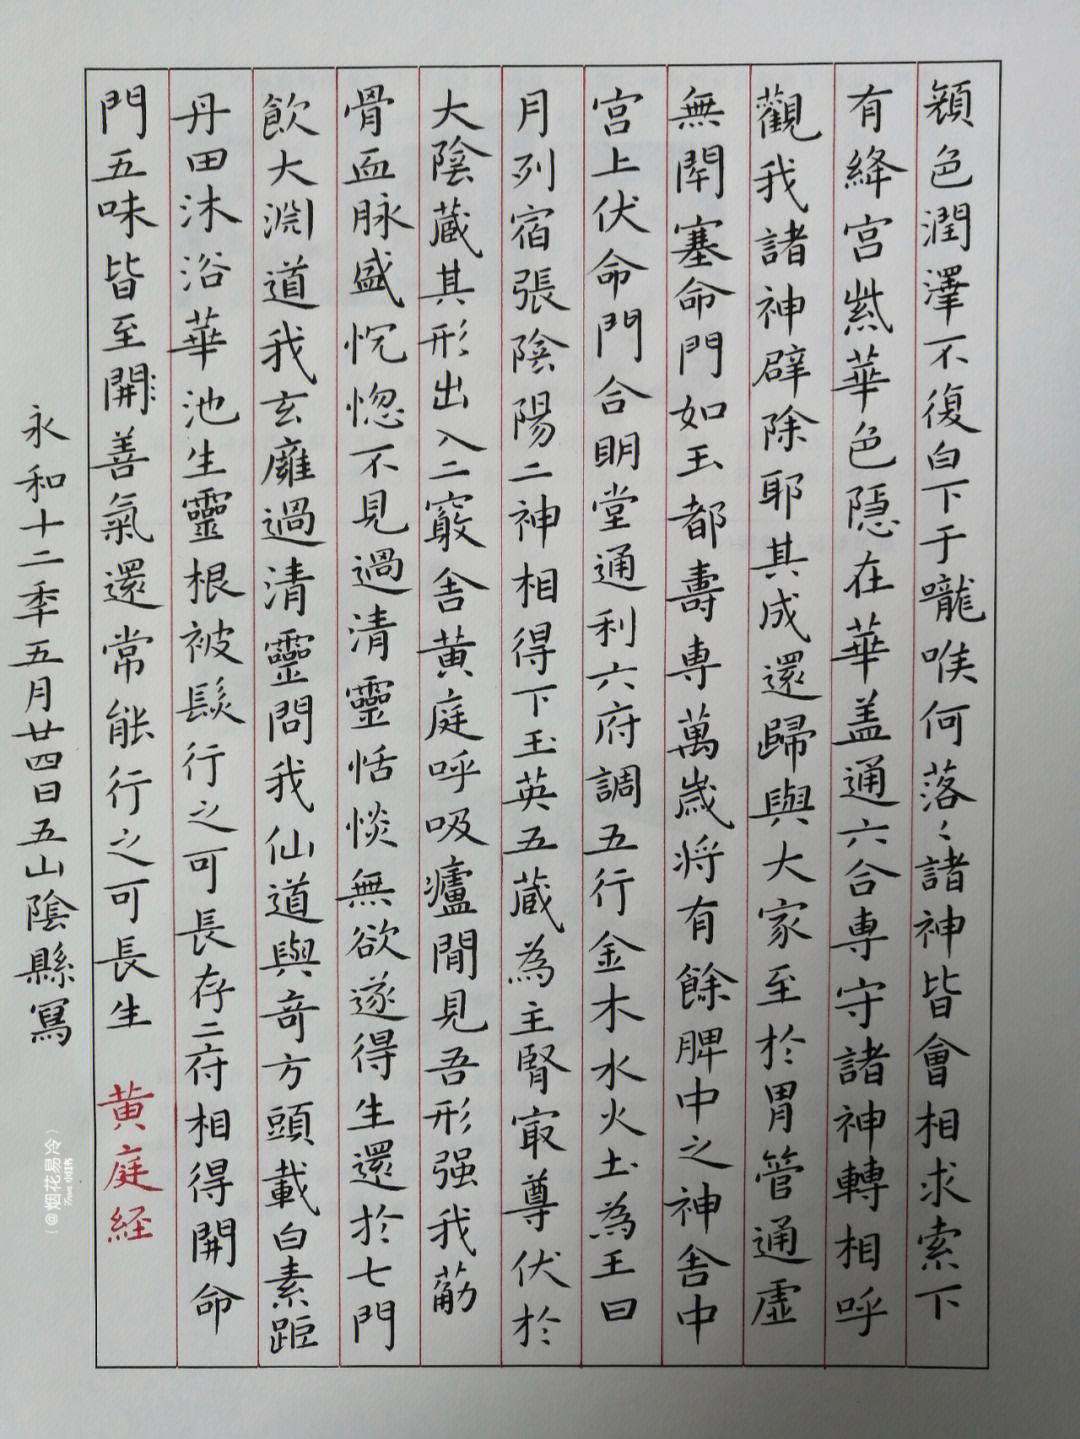 顏色潤澤不復白下于嚨喉何落〻諸神皆會相求索下
有絳宮紫華色隱在華盖通六合專守諸神轉相呼
觀我諸神辟除耶其成還歸與大家至於胃管通虛
無閉塞命門如玉都壽專萬歲将有餘脾中之神舍中
宮上伏命門合明堂通利六府調五行金木水火土為王日
月列宿張陰陽二神相得下玉英五蔵為主腎㝡尊伏於
大陰蔵其形出入二竅舍黄庭呼吸廬間見吾形强我茐
骨血脉盛恍惚不見過清靈恬惔無欲遂得生還於七門
飲大淵道我玄廱過清靈問我仙道與奇方頭載白素距
丹田沐浴華池生靈根被髮行之可長存二府相得開命
門五味皆至開善氣還常能行之可長生 黄庭经
永和十二年五月廿四日五山陰縣寫
@烟花易冷